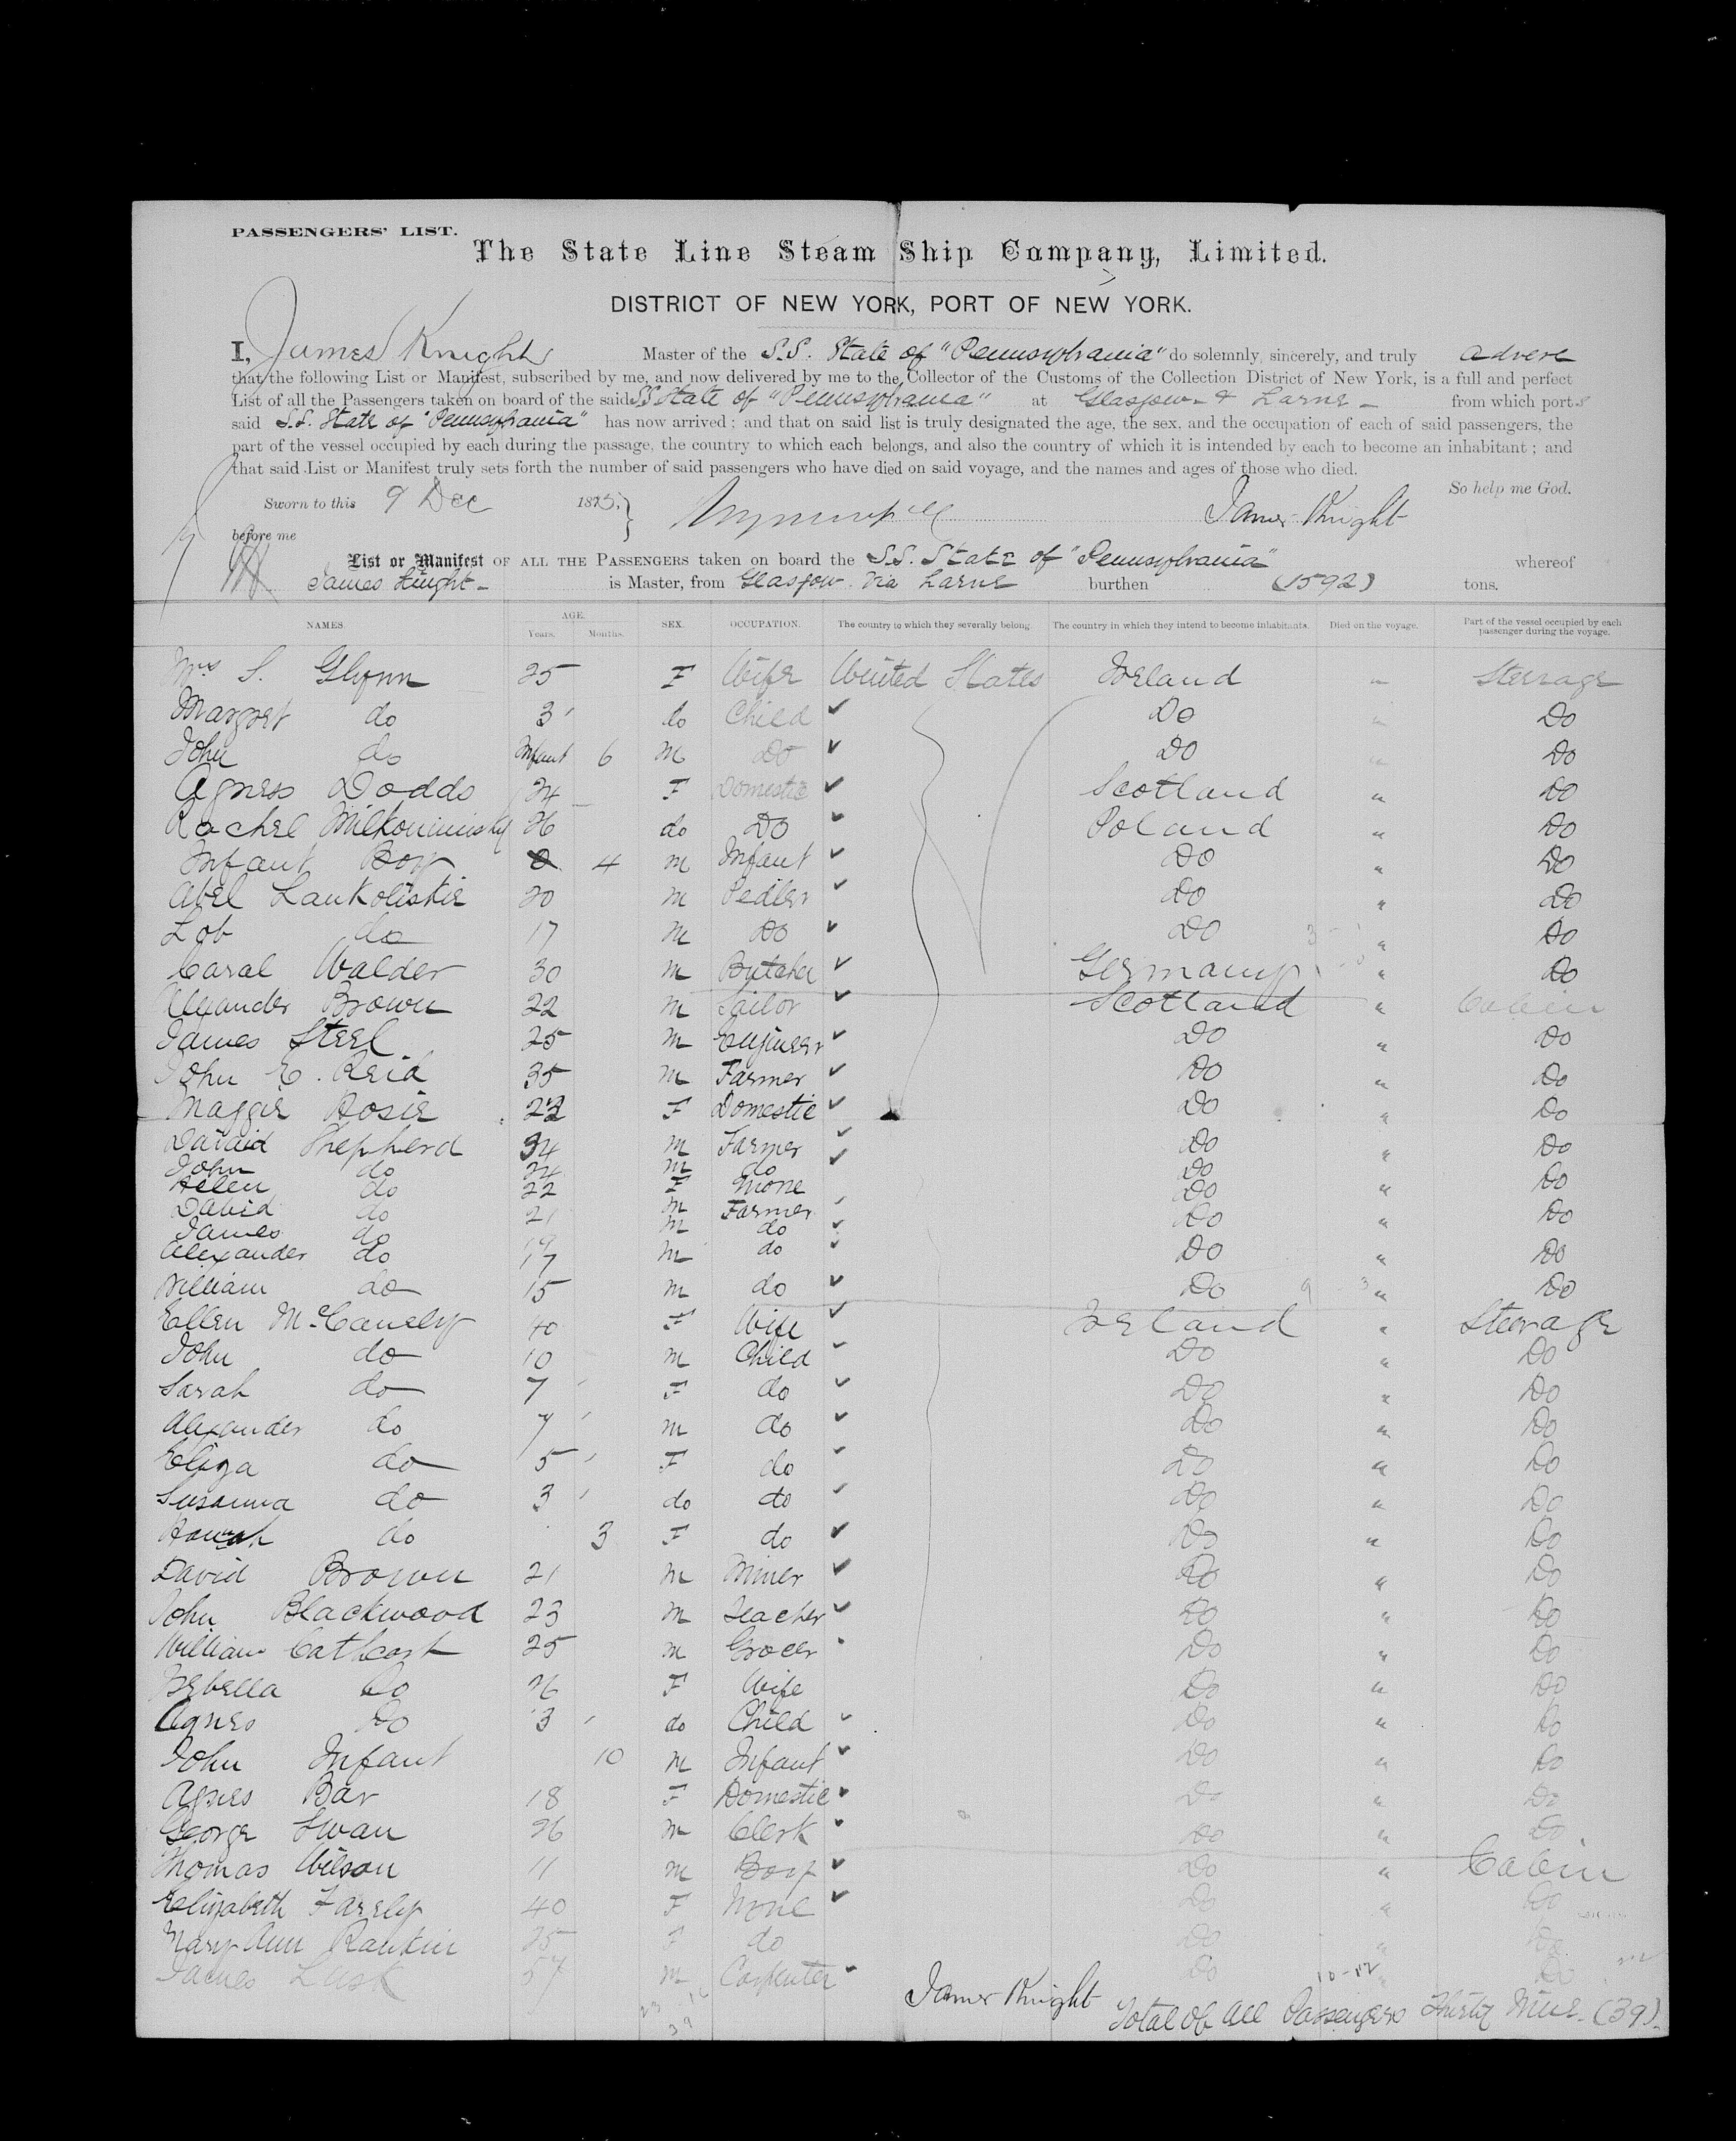 PASSENGERS' LIST.
The State Line Steam Ship Company, Limited.
DISTRICT OF NEW YORK, PORT OF NEW YORK.
I, James Knight Master of the S.S. State of "Pennsylvania" do solemnly, sincerely, and truly
that the following List or Manifest, subscribed by me, and now delivered by me to the Collector of the Customs of the Collection District of New York, is a full and perfect
List of all the Passengers taken on board of the said SS State of "Pennsylvania" at Glasgow & Larne from which ports
said S.S. State of "Pennsylvania" has now arrived; and that on said list is truly designated the age, the sex, and the occupation of each of said passengers, the
part of the vessel occupied by each during the passage, the country to which each belongs, and also the country of which it is intended by each to become an inhabitant; and
that said List or Manifest truly sets forth the number of said passengers who have died on said voyage, and the names and ages of those who died.
So help me God.
Sworn to this 9 Dec James Knight
before me
List or Manifest OF ALL THE PASSENGERS taken on board the S.S. State of "Pennsylvania" whereof
James Knight is Master, from Glasgow via Larne burthen (1592) tons.
NAMES. AGE. Years. Months. SEX. OCCUPATION. The country to which they severally belong. The country in which they intend to become inhabitants. Died on the voyage. Part of the vessel occupied by each passenger during the voyage.
Mrs S. Glynn 25 F Wife United States Ireland " Steerage
Margret do 3 do Child Do " Do
John do Infant 6 M Do Do " Do
Agness Dodds 24 F Domestic Scotland " Do
Rachel 26 do Do Poland " Do
Infant Boy 4 M Infant Do " Do
Abel Lankoliskie 20 M Pedler Do " Do
Lob do 17 M Do Do " Do
Caral Walder 30 M Butcher Germany " Do
Alexander Brown 22 M Tailor Scotland " Cabin
James Steel 25 M Engineer Do " Do
John E. Reid 35 M Farmer Do " Do
Maggie Hosie 22 F Domestic Do " Do
David Shepherd 54 M Farmer Do " Do
John do 24 M do Do
Helen do 22 F None Do " Do
David do 21 M Farmer Do " Do
James do 19 M do
Alexander do 17 M do Do " Do
William do 15 M do Do " Do
Ellen McCanely 40 F Wife Ireland " Steerage
John do 10 M Child Do " Do
Sarah do 7 F do Do " Do
Alexander do 7 M do Do " Do
Eliza do 5 F do Do " Do
Susanna do 3 do do Do " Do
Hannah do 3 F do Do " Do
David Brown 21 M Miner Do " Do
John Blackwood 23 M Teacher Do " Do
William Cathcart 25 M Grocer Do " Do
Isebella Do 26 F Wife Do " Do
Agnes Do 3 do Child Do " Do
John Infant 10 M Infant Do " Do
Agnes Bar 18 F Domestic Do " Do
George Swan 26 M Clerk Do " Do
Thomas Wilson 11 M Boy Do " Cabin
Elizabeth Farely 40 F None Do " Do
Mary Ann Rankin 25 F do Do " Do
James Lusk 57 M Carpenter Do " Do
James Knight Total of all Passengers Thirty Nine (39)